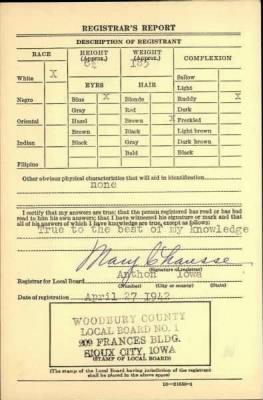 REGISTRAR'S REPORT
DESCRIPTION OF REGISTRANT
RACE HEIGHT (Approx.) WEIGHT (Approx.) COMPLEXION
185
White X Sallow
EYES HAIR Light
Negro Blue X Blonde Ruddy X
Gray Red Dark
Oriental Hazel Brown X Freckled
Brown Black Light brown
Indian Black Gray Dark brown
Bald Black
Filipino
Other obvious physical characteristics that will aid in identification
none
I certify that my answers are true; that the person registered has read or has had
read to him his own answers; that I have witnessed his signature or mark and that
all of his answers of which I have knowledge are true, except as follows:
True to the best of my knowledge
Mary Chausse
(Signature of registrar)
Anthon Iowa
Registrar for Local Board
(Number) (City or county) (State)
Date of registration April 27 1942
WOODBURY COUNTY
LOCAL BOARD NO. 1
209 FRANCES BLDG.
SIOUX CITY, IOWA
(STAMP OF LOCAL BOARD)
(The stamp of the Local Board having jurisdiction of the registrant
shall be placed in the above space)